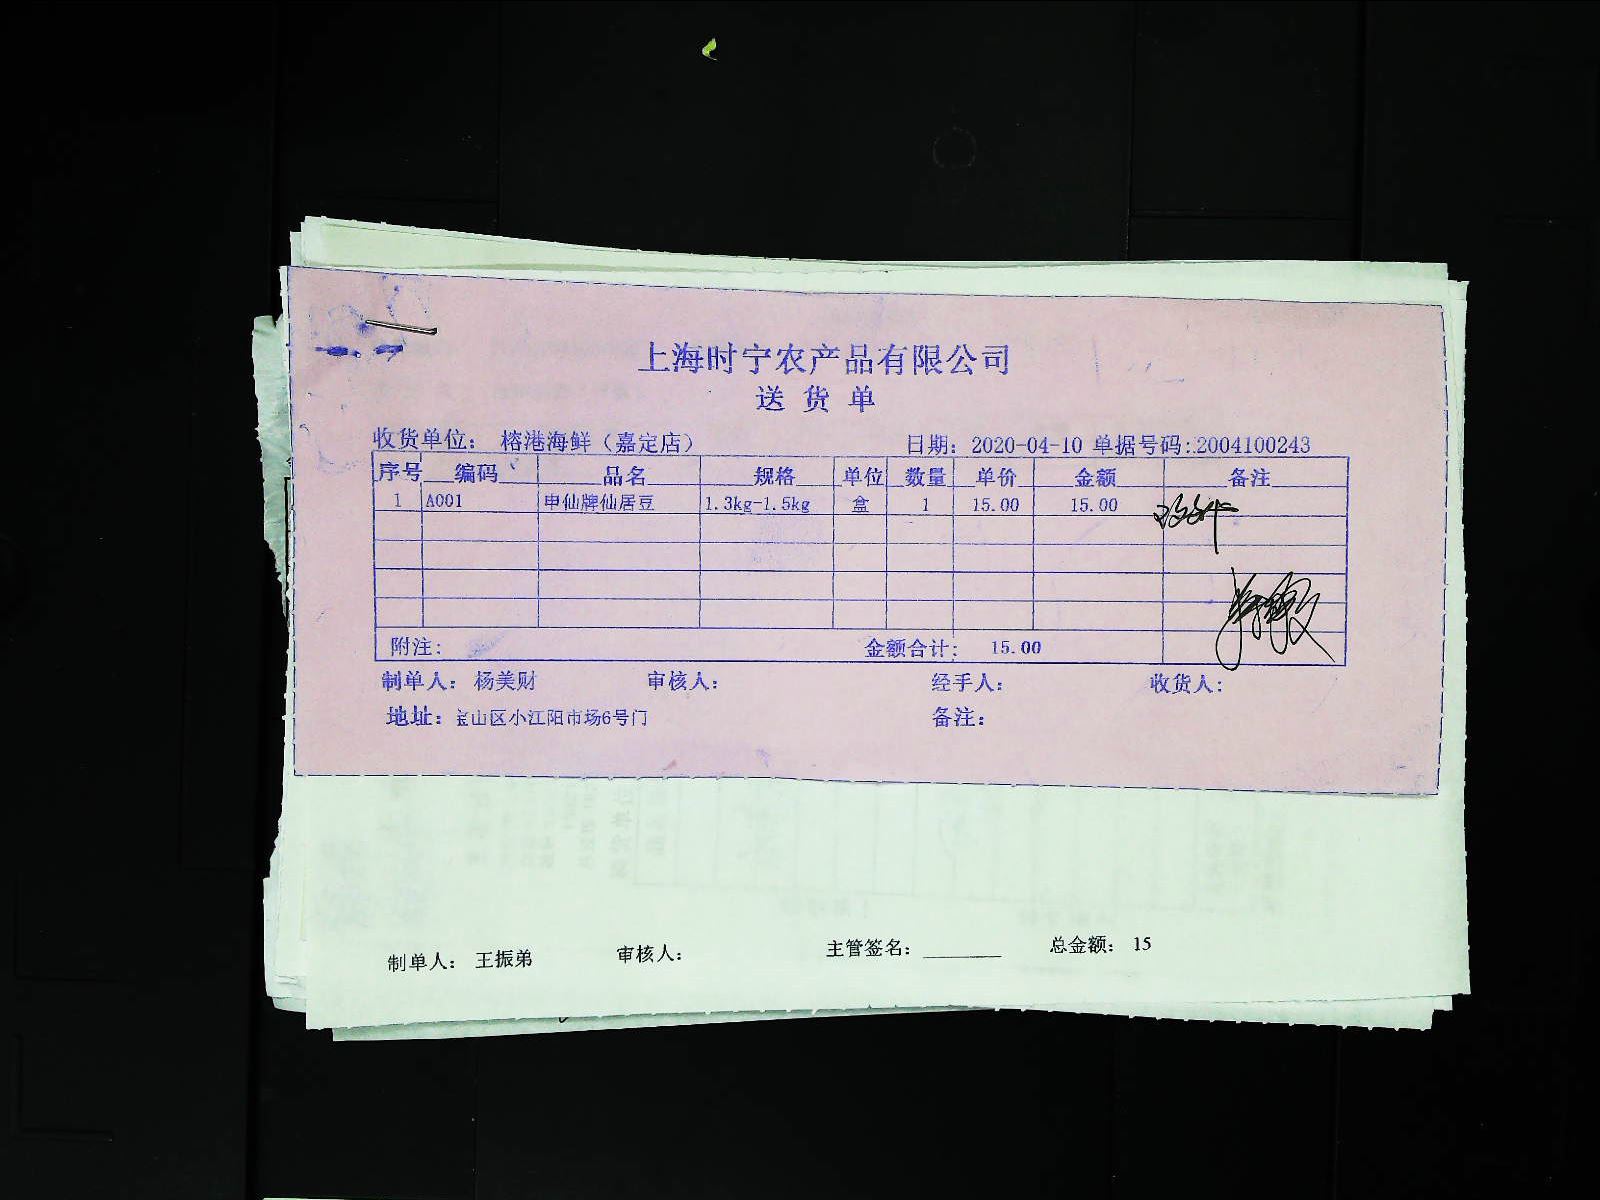 上海时宁农产品有限公司
送货单
收货单位： 榕港海鲜（嘉定店） 日期: 2020-04-10 单据号码:2004100243
序号 编码 品名 规格 单位 数量 单价 金额 备注
1 A001 申仙牌仙居豆 1.3kg-1.5kg 盒 1 15.00 15.00
附注: 金额合计: 15.00
制单人: 杨美财 审核人: 经手人: 收货人:
地址: 宝山区小江阳市场6号门 备注:
制单人: 王振弟 审核人: 主管签名: ________ 总金额: 15